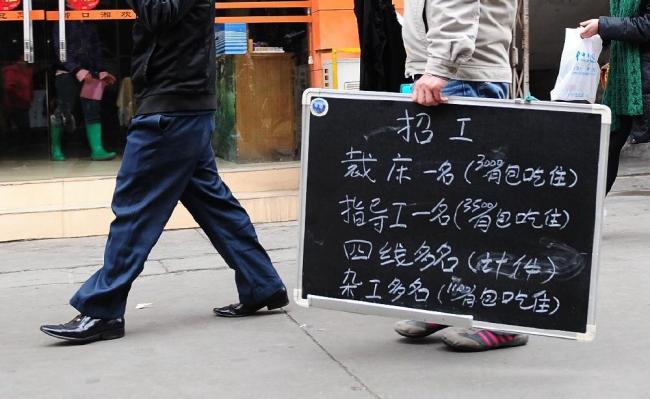 招工
裁床一名(3000有包吃住)
指导工一名(3500有包吃住)
四线多名(计件)
杂工多名(1100有包吃住)